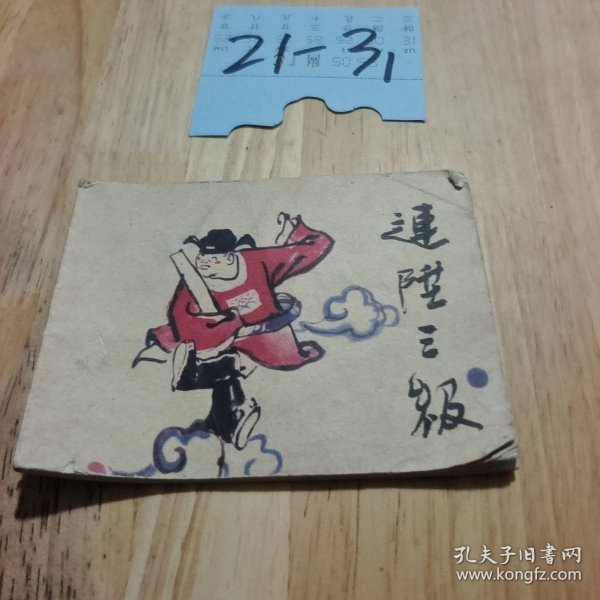 21-31
連陞三級
孔夫子旧書网
www.kongfz.com